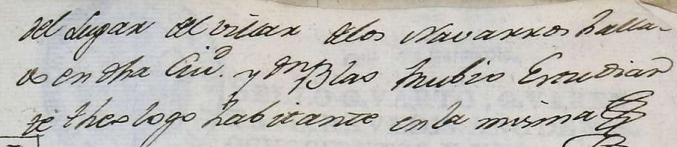 del Lugar del Villar delos Navarros halla-
os en dha Ciud. y Dn Blas Rubio Estudian
te theologo habitante en la misma